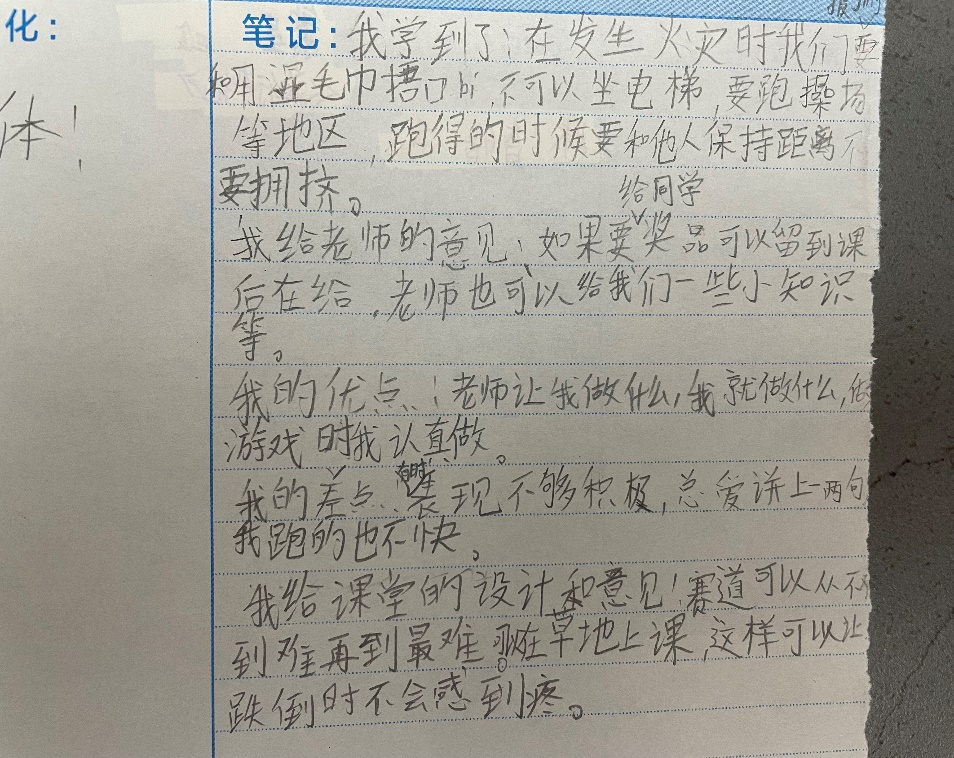 化：
体！
笔记：我学到了：在发生火灾时我们要
和用湿毛巾捂口bi，不可以坐电梯，要跑操场
等地区，跑得的时候要和他人保持距离不
要拥挤。
给同学
我给老师的意见：如果要奖品可以留到课
后在给，老师也可以给我们一些小知识
等。
我的优点：老师让我做什么，我就做什么，做
游戏时我认真做。
有时
我的差点：表现不够积极，总爱讲上一两句
我跑的也不快。
我给课堂的设计和意见！赛道可以从不
到难再到最难。在草地上课，这样可以让
跌倒时不会感到疼。